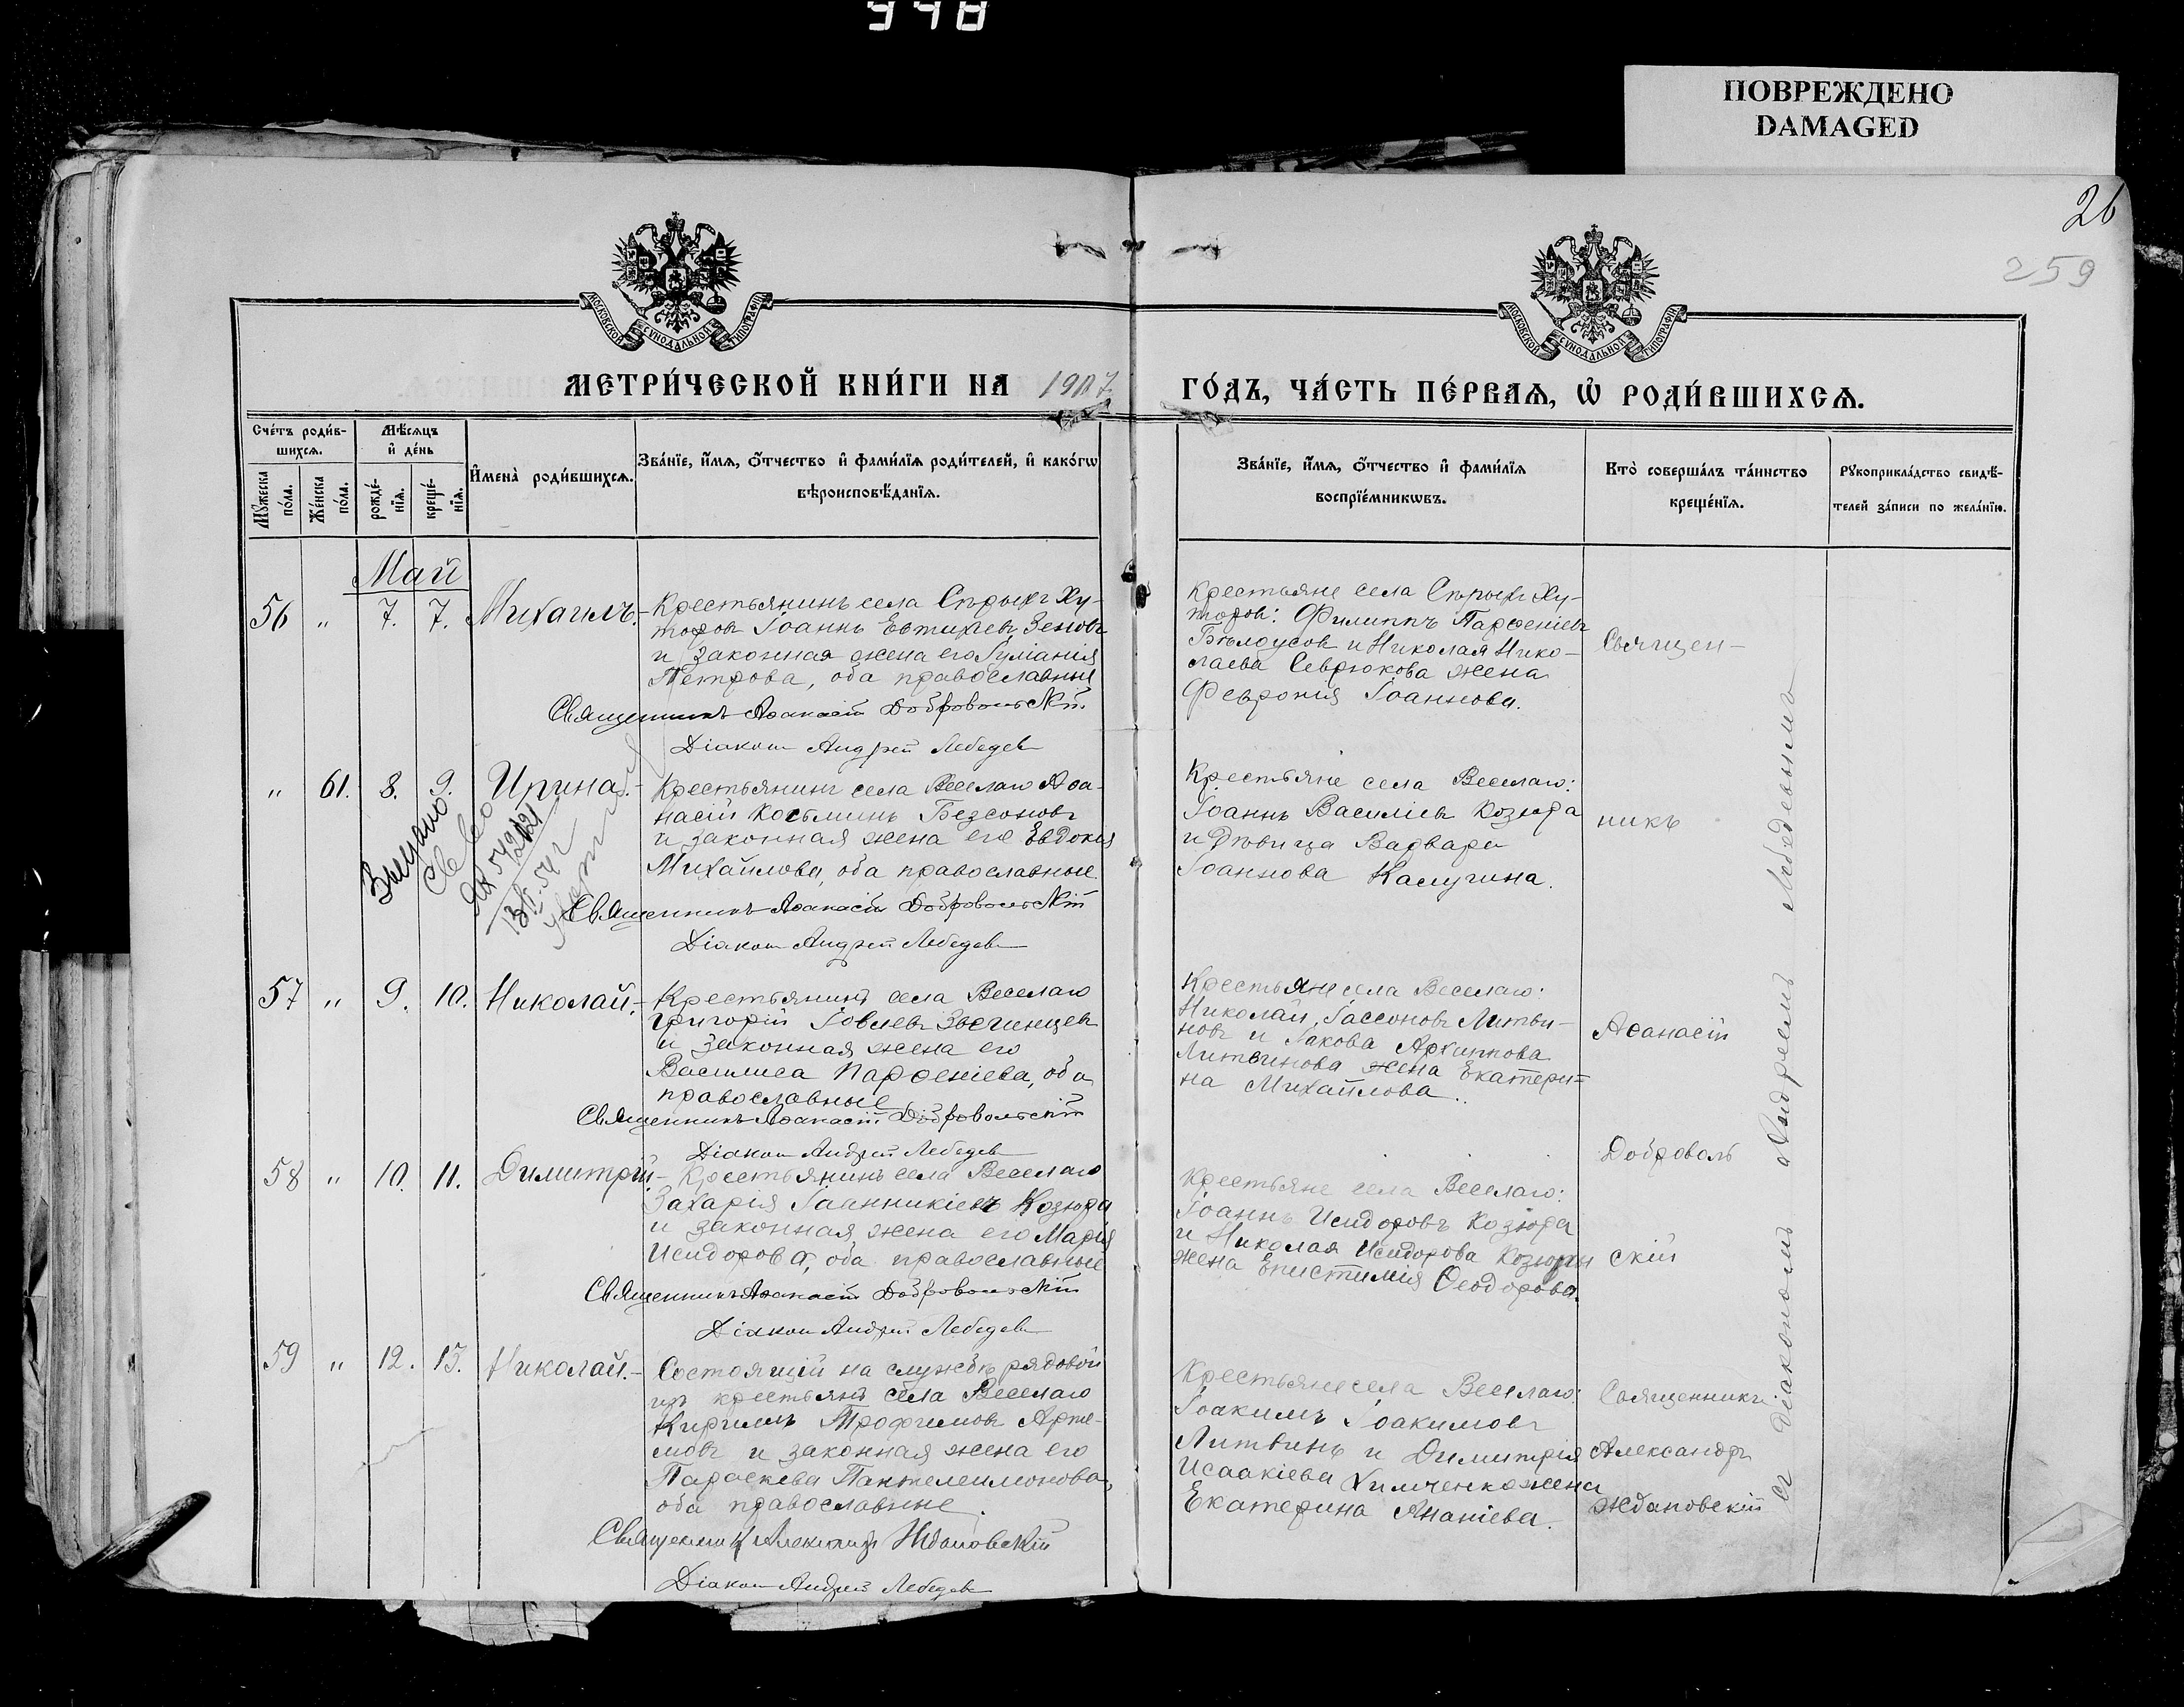 948
ПОВРЕЖДЕНО
DAMAGED
26
259
МОСКОВСКОЙ СѴНОДАЛЬНОЙ ТИПОГРАФІИ
МОСКОВСКОЙ СѴНОДАЛЬНОЙ ТИПОГРАФІИ
МЕТРИ́ЧЕСКОЙ КНИ́ГИ НА 1907
ГО́ДЪ, ЧА́СТЬ ПЕ́РВАѦ, Ѡ҆ РОДИ́ВШИХСѦ.
Сче́тъ роди́в-
шихсѧ.
Мѣ́сѧцъ
и҆ де́нь
Мꙋ́жеска
по́ла.
Же́нска
по́ла.
рожде́-
нїѧ.
креще́-
нїѧ.
И҆мена̀ роди́вшихсѧ.
Зва́нїе, и҆́мѧ, ѻ҆́тчество и҆ фами́лїѧ роди́телей, и҆ како́гѡ
вѣроисповѣ́данїѧ.
Зва́нїе, и҆́мѧ, ѻ҆́тчество и҆ фами́лїѧ
воспрїе́мникѡвъ.
Кто̀ соверша́лъ та́инство
креще́нїѧ.
Рꙋкоприкла́дство свидѣ́-
телей за́писи по жела́нїю.
Май
56 " 7. 7. Михаилъ.-
Крестьянинъ села Спрыхъ Ху-
торовъ Іоаннъ Евтихіевъ Зеновъ
и законная жена его Іуліанія
Петрова, оба православные
Священникъ Аѳанасій Добровольскій
Діаконъ Андрей Лебедевъ
Крестьяне села Спрыхъ Ху-
торовъ: Филиппъ Парѳеніевъ
Бѣлоусовъ и Николая Нико-
лаева Севрюкова жена
Феврония Іоаннова.
Священ-
" 61. 8. 9. Ирина.-
Крестьянинъ села Веселаго Аѳа-
насій Косьминъ Безсоновъ
и законная жена его Евдокія
Михайлова, оба православные
Священникъ Аѳанасій Добровольскій
Діаконъ Андрей Лебедевъ
Крестьяне села Веселаго:
Іоаннъ Василіевъ Козюра
и дѣвица Варвара
Іоаннова Калугина.
никъ
57 " 9. 10. Николай.-
Крестьянинъ села Веселаго
Григорій Іовлевъ Звегинцевъ
и законная жена его
Василиса Парѳеніева, оба
православные
Священникъ Аѳанасій Добровольскій
Діаконъ Андрей Лебедевъ
Крестьяне села Веселаго:
Николай Іассоновъ Литви-
новъ и Іакова Архиппова
Литвинова жена Екатери-
на Михайлова.
Аѳанасій
58 " 10. 11. Димитрій.-
Крестьянинъ села Веселаго
Захарія Іоанникіевъ Козюра
и законная жена его Марія
Исидорова, оба православные
Священникъ Аѳанасій Добровольскій
Діаконъ Андрей Лебедевъ
Крестьяне села Веселаго:
Іоаннъ Исидоровъ Козюра
и Николая Исидорова Козюры
жена Епистимія Ѳеодорова.
Доброволь
скій
59 " 12. 13. Николай.-
Состоящій на службѣ рядовой
изъ крестьянъ села Веселаго
Кириллъ Трофимовъ Арте-
мовъ и законная жена его
Параскева Пантелеимонова,
оба православные.
Священникъ Александръ Ждановскій
Діаконъ Андрей Лебедевъ
Крестьяне села Веселаго:
Іоакимъ Іоакимовъ
Литвинъ и Димитрія
Исаакіева Химченко жена
Екатерина Ананіева.
Священникъ
Александръ
Ждановскій
съ діакономъ Андреемъ Лебедевымъ